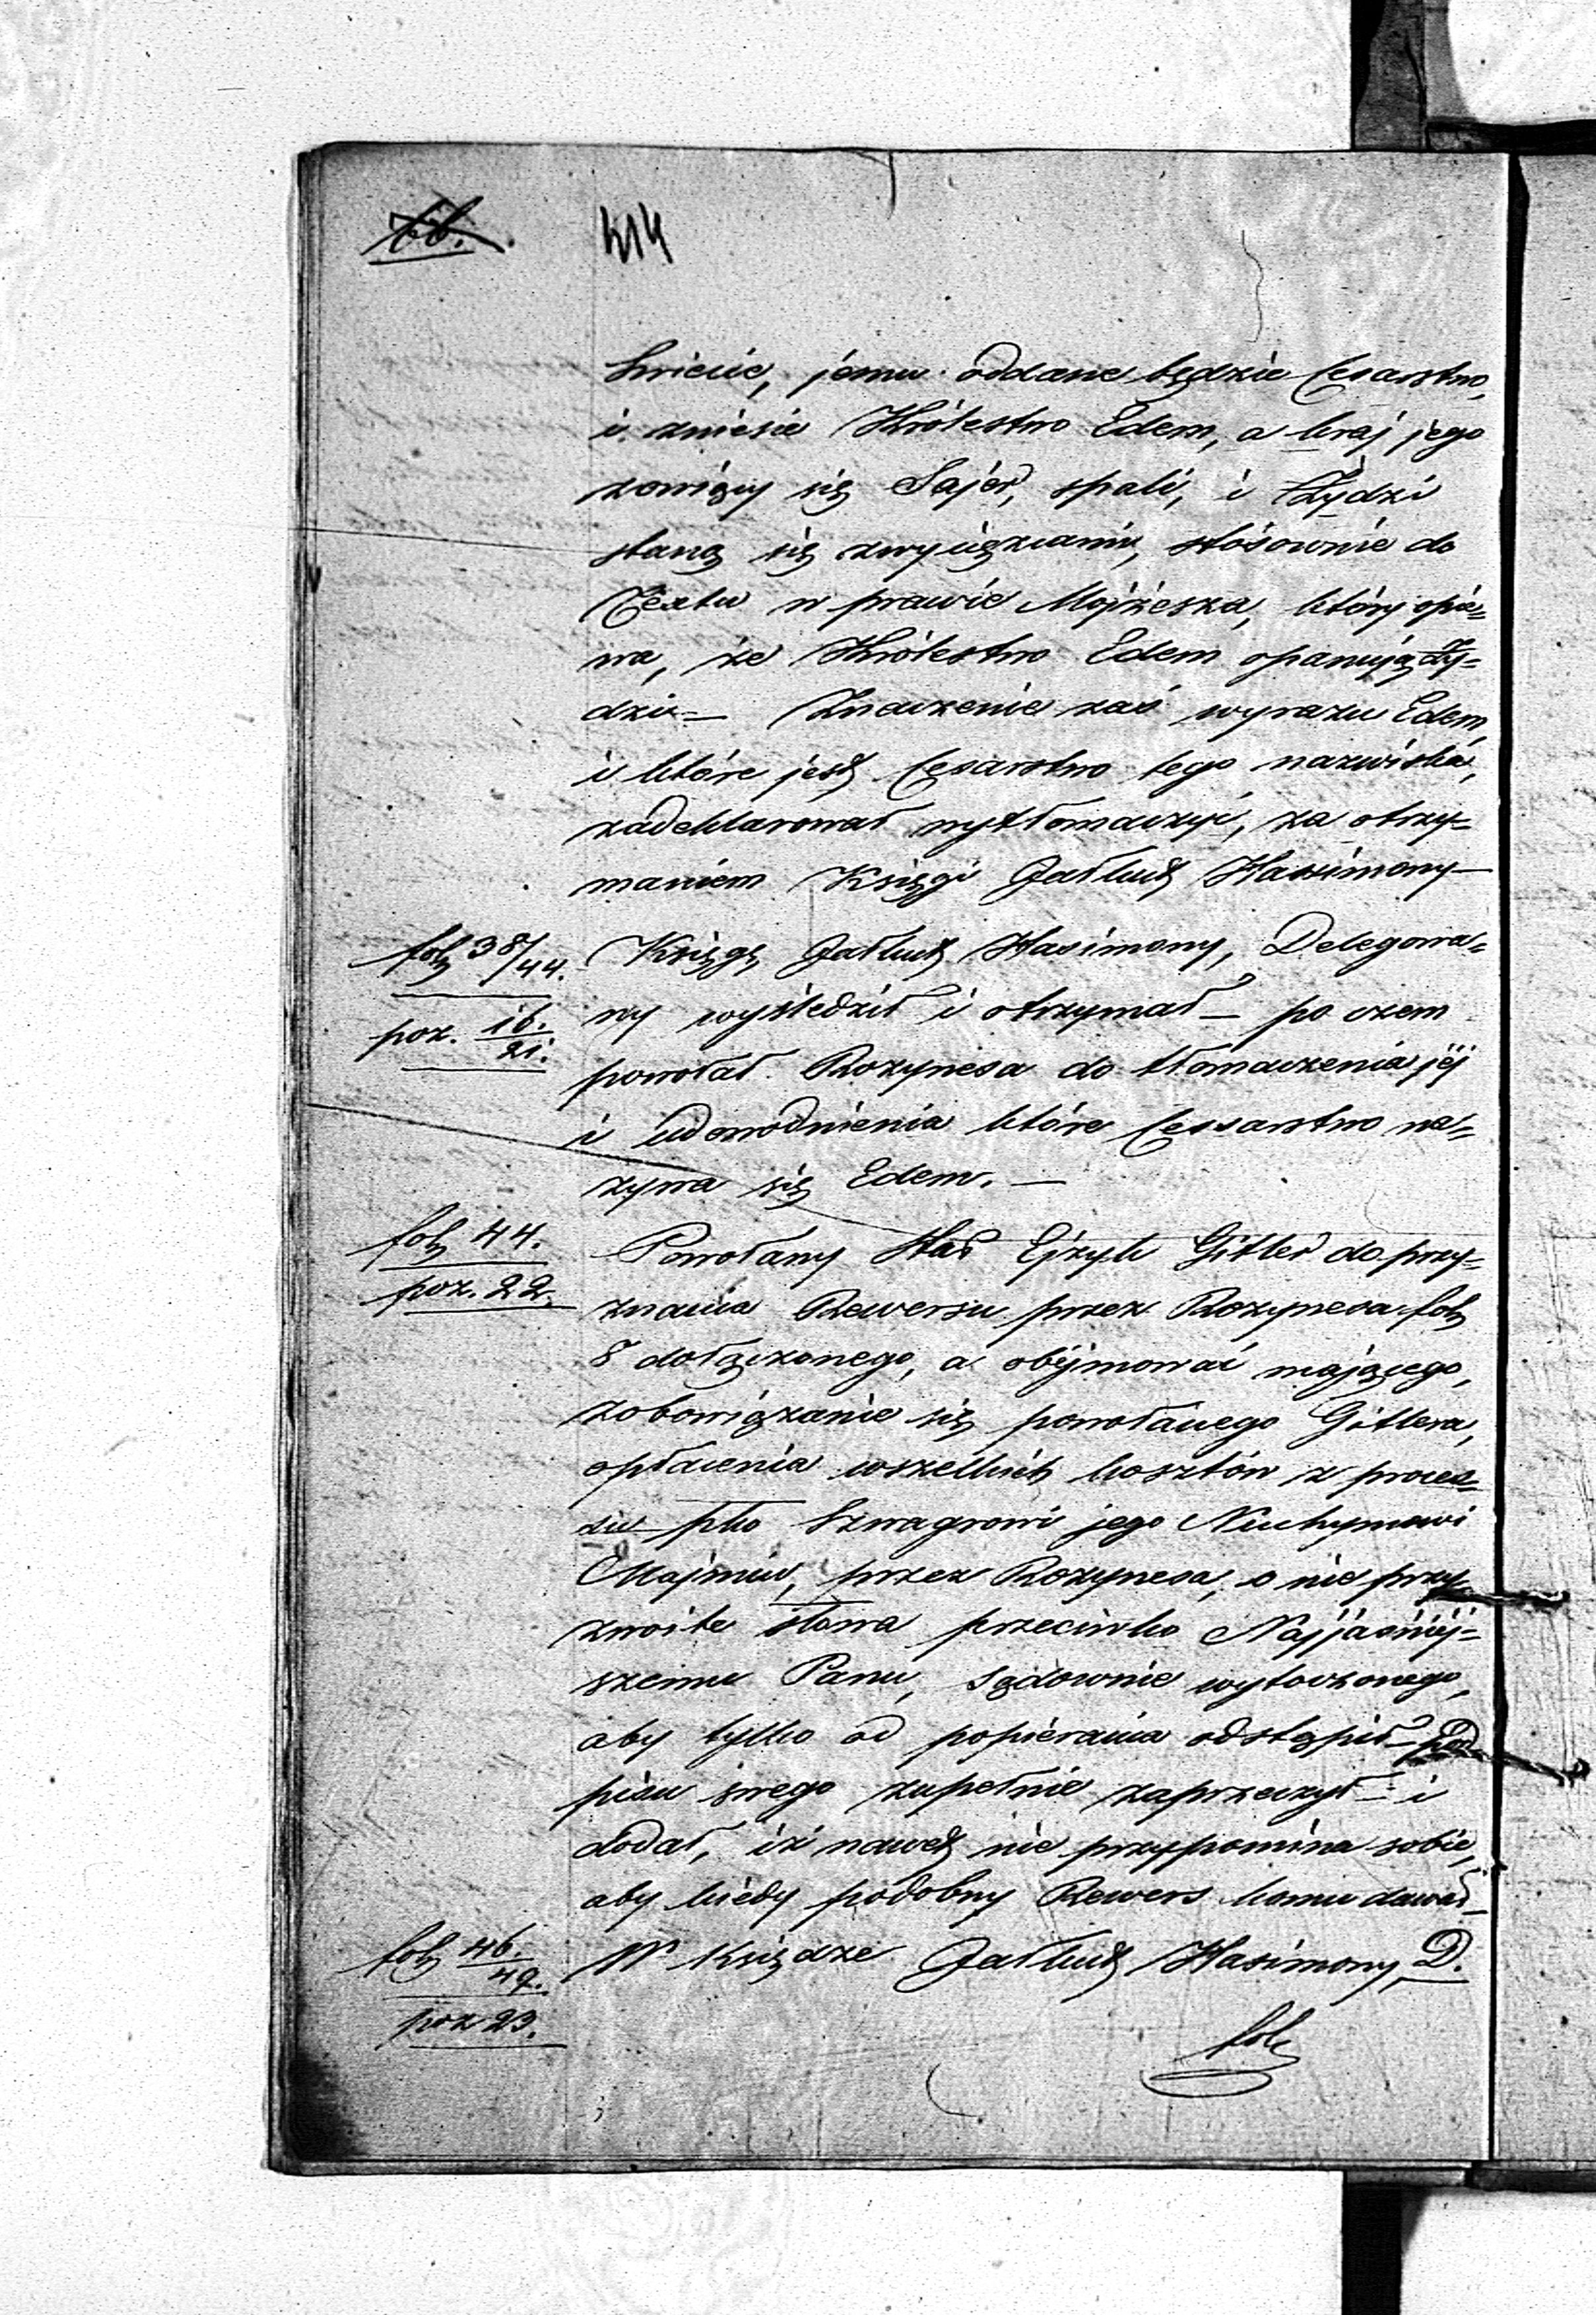 66.
414
świecie, jemu oddane będzie Cesarstwo,
i zniesie Królestwo Edem, a kraj jego
zowiący się Sajer, spali, i Żydzi
staną się zwyciężcami, stósownie do
Textu w prawie Mojżesza, który opie=
wa, że Królestwo Edem opanują Ży=
dzi — Znaczenie zaś wyrazu Edem,
i które jest Cesarstwo tego nazwiska,
zadeklarował wytłomaczyć, za otrzy=
maniem Księgi Jałkut Hassimony —
fol 38/44.
poz. 16./21.
Księgę Jałkut Hasimony, Delegowa=
ny wyśledził i otrzymał — po czem
powołał Rozynesa do tłomaczenia jéj
i udowodnienia które Cessarstwo na=
zywa się Edem. —
fol 44.
poz. 22.
Powołany Ejzyk Gitler do przy=
znania Rewersu przez Rozynesa fol
8 dołączonego, a obejmować mającego,
zobowiązanie się powołanego Gitlera,
opłacenia wszelkich kosztów z proces=
su pko Szwagrowi jego Nuchymowi
Majmin, przez Rozynesa, o nie przy=
zwoite słowa przeciwko Najjaśniéj=
szemu Panu, sądownie wytoczonego,
aby tylko od popierania odstąpił — Pod
pisu swego zupełnie zaprzeczył — i
dodał, iż nawet nie przypomina sobie,
aby kiedy podobny Rewers komu dawał —
fol 46./47.
poz 23.
W Księdze Jałkut Hasimony, D.
fol